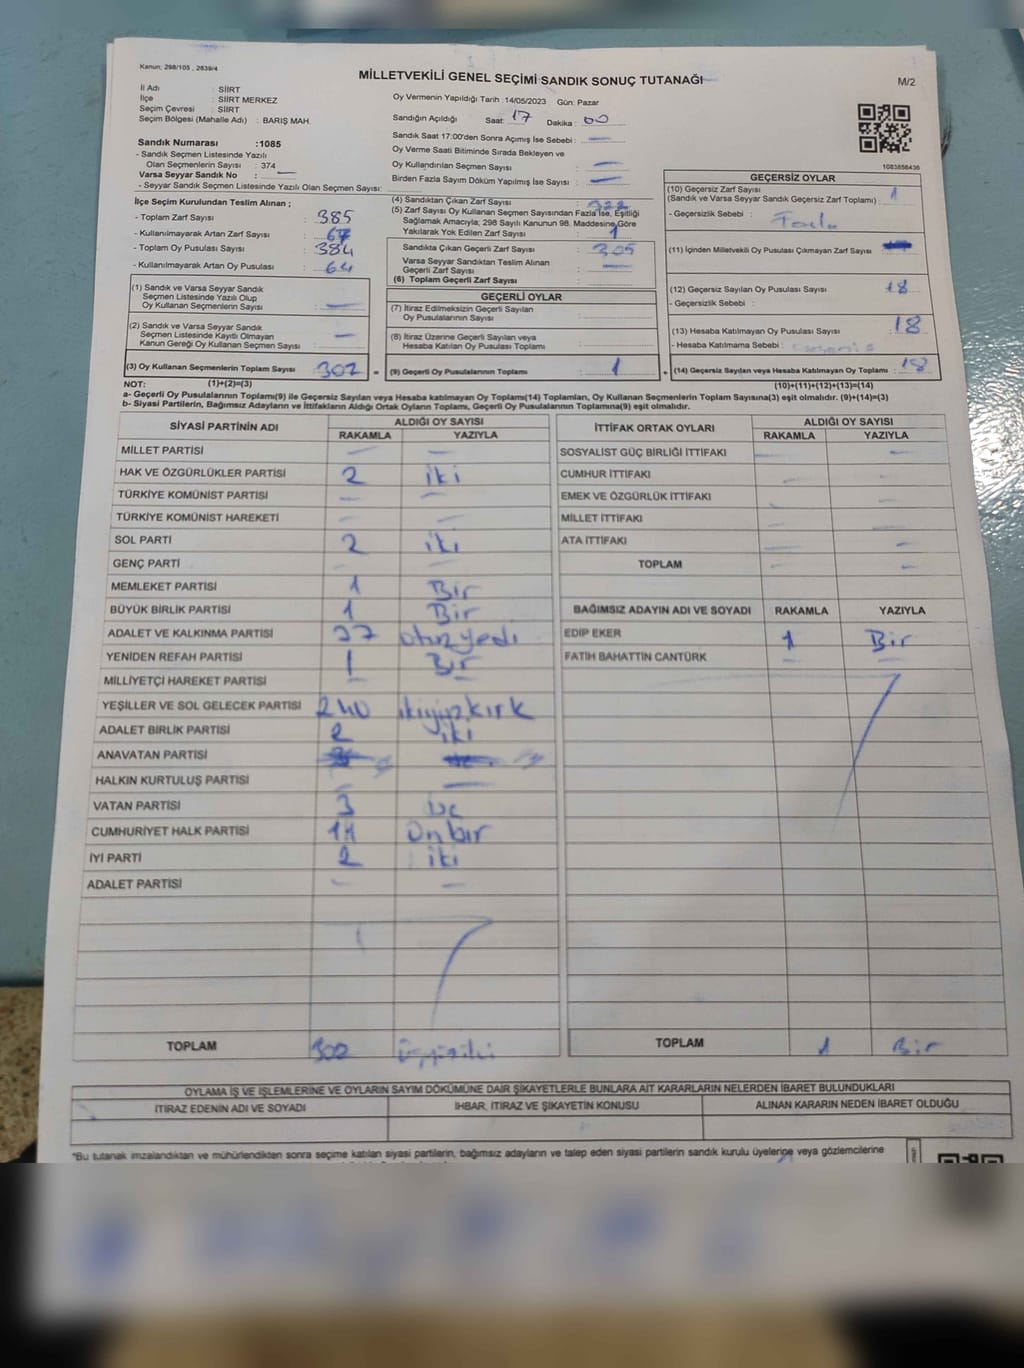 Kanun: 298/105 , 2839/4
MİLLETVEKİLİ GENEL SEÇİMİ SANDIK SONUÇ TUTANAĞI
M/2
İl Adı : SİİRT
İlçe : SİİRT MERKEZ
Seçim Çevresi : SİİRT
Seçim Bölgesi (Mahalle Adı) : BARIŞ MAH.
Sandık Numarası :1085
- Sandık Seçmen Listesinde Yazılı
Olan Seçmenlerin Sayısı : 374
Varsa Seyyar Sandık No : —
- Seyyar Sandık Seçmen Listesinde Yazılı Olan Seçmen Sayısı:
İlçe Seçim Kurulundan Teslim Alınan ;
- Toplam Zarf Sayısı : 385
- Kullanılmayarak Artan Zarf Sayısı : 67
- Toplam Oy Pusulası Sayısı : 384
- Kullanılmayarak Artan Oy Pusulası : 64
(1) Sandık ve Varsa Seyyar Sandık
Seçmen Listesinde Yazılı Olup
Oy Kullanan Seçmenlerin Sayısı : —
(2) Sandık ve Varsa Seyyar Sandık
Seçmen Listesinde Kayıtlı Olmayan
Kanun Gereği Oy Kullanan Seçmen Sayısı : —
(3) Oy Kullanan Seçmenlerin Toplam Sayısı : 302
Oy Vermenin Yapıldığı Tarih :14/05/2023 Gün: Pazar
Sandığın Açıldığı Saat: 17 Dakika : 00
Sandık Saat 17:00'den Sonra Açımış İse Sebebi : —
Oy Verme Saati Bitiminde Sırada Bekleyen ve
Oy Kullandırılan Seçmen Sayısı : —
Birden Fazla Sayım Döküm Yapılmış İse Sayısı : —
(4) Sandıktan Çıkan Zarf Sayısı : 322
(5) Zarf Sayısı Oy Kullanan Seçmen Sayısından Fazla İse, Eşitliği
Sağlamak Amacıyla; 298 Sayılı Kanunun 98. Maddesine Göre
Yakılarak Yok Edilen Zarf Sayısı : 1
Sandıkta Çıkan Geçerli Zarf Sayısı : 305
Varsa Seyyar Sandıktan Teslim Alınan
Geçerli Zarf Sayısı : —
(6) Toplam Geçerli Zarf Sayısı :
GEÇERLİ OYLAR
(7) İtiraz Edilmeksizin Geçerli Sayılan
Oy Pusulalarının Sayısı :
(8) İtiraz Üzerine Geçerli Sayılan veya
Hesaba Katılan Oy Pusulası Toplamı :
= (9) Geçerli Oy Pusulalarının Toplamı : 1
1083856436
GEÇERSİZ OYLAR
(10) Geçersiz Zarf Sayısı
(Sandık ve Varsa Seyyar Sandık Geçersiz Zarf Toplamı) : 1
- Geçersizlik Sebebi :
(11) İçinden Milletvekili Oy Pusulası Çıkmayan Zarf Sayısı :
(12) Geçersiz Sayılan Oy Pusulası Sayısı : 18
- Geçersizlik Sebebi :
(13) Hesaba Katılmayan Oy Pusulası Sayısı : 18
- Hesaba Katılmama Sebebi :
+ (14) Geçersiz Sayılan veya Hesaba Katılmayan Oy Toplamı : 18
NOT: (1)+(2)=(3) (10)+(11)+(12)+(13)=(14)
a- Geçerli Oy Pusulalarının Toplamı(9) ile Geçersiz Sayılan veya Hesaba katılmayan Oy Toplamı(14) Toplamları, Oy Kullanan Seçmenlerin Toplam Sayısına(3) eşit olmalıdır. (9)+(14)=(3)
b- Siyasi Partilerin, Bağımsız Adayların ve İttifakların Aldığı Ortak Oyların Toplamı, Geçerli Oy Pusulalarının Toplamına(9) eşit olmalıdır.
SİYASİ PARTİNİN ADI ALDIĞI OY SAYISI
RAKAMLA YAZIYLA
MİLLET PARTİSİ — —
HAK VE ÖZGÜRLÜKLER PARTİSİ 2 iki
TÜRKİYE KOMÜNİST PARTİSİ — —
TÜRKİYE KOMÜNİST HAREKETİ — —
SOL PARTİ 2 iki
GENÇ PARTİ — —
MEMLEKET PARTİSİ 1 Bir
BÜYÜK BİRLİK PARTİSİ 1 Bir
ADALET VE KALKINMA PARTİSİ 37 otuzyedi
YENİDEN REFAH PARTİSİ 1 Bir
MİLLİYETÇİ HAREKET PARTİSİ — —
YEŞİLLER VE SOL GELECEK PARTİSİ 240 ikiyüzkırk
ADALET BİRLİK PARTİSİ 2 iki
ANAVATAN PARTİSİ
HALKIN KURTULUŞ PARTİSİ — —
VATAN PARTİSİ 3 üç
CUMHURİYET HALK PARTİSİ 11 Onbir
İYİ PARTİ 2 iki
ADALET PARTİSİ — —
TOPLAM 302 üçyüziki
İTTİFAK ORTAK OYLARI ALDIĞI OY SAYISI
RAKAMLA YAZIYLA
SOSYALİST GÜÇ BİRLİĞİ İTTİFAKI — —
CUMHUR İTTİFAKI — —
EMEK VE ÖZGÜRLÜK İTTİFAKI — —
MİLLET İTTİFAKI — —
ATA İTTİFAKI — —
TOPLAM — —
BAĞIMSIZ ADAYIN ADI VE SOYADI RAKAMLA YAZIYLA
EDİP EKER 1 Bir
FATİH BAHATTİN CANTÜRK — —
TOPLAM 1 Bir
OYLAMA İŞ VE İŞLEMLERİNE VE OYLARIN SAYIM DÖKÜMÜNE DAİR ŞİKAYETLERLE BUNLARA AİT KARARLARIN NELERDEN İBARET BULUNDUKLARI
İTİRAZ EDENİN ADI VE SOYADI İHBAR, İTİRAZ VE ŞİKAYETİN KONUSU ALINAN KARARIN NEDEN İBARET OLDUĞU
*Bu tutanak imzalandıktan ve mühürlendikten sonra seçime katılan siyasi partilerin, bağımsız adayların ve talep eden siyasi partilerin sandık kurulu üyelerine veya gözlemcilerine